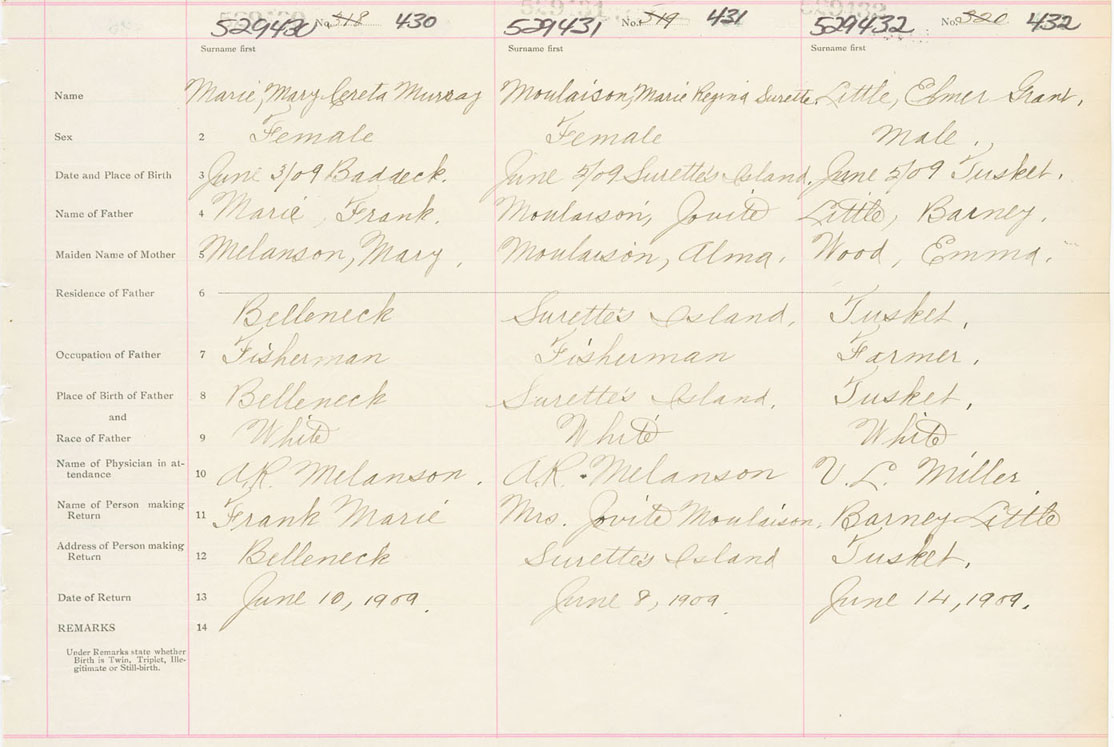 529430 No. 518 430 529431 No. 519 431 529432 No. 520 432
Surname first Surname first Surname first
Name Marie, Mary Greta Murray Moulaison, Marie Regina Surette. Little, Elmer Grant.
Sex 2 Female Female Male.
Date and Place of Birth 3 June 3/09 Baddeck. June 5/09 Surette's Island. June 5/09 Tusket.
Name of Father 4 Marie, Frank. Moulaison, Jovite Little, Barney.
Maiden Name of Mother 5 Melanson, Mary. Moulaison, Alma. Wood, Emma.
Residence of Father 6
Belleneck Surette's Island. Tusket.
Occupation of Father 7 Fisherman Fisherman Farmer.
Place of Birth of Father 8 Belleneck Surette's Island. Tusket.
and
Race of Father 9 White White White
Name of Physician in at-
tendance 10 A.R. Melanson. A.R. Melanson V. L. Miller
Name of Person making
Return 11 Frank Marie Mrs. Jovite Moulaison. Barney Little
Address of Person making
Return 12 Belleneck Surette's Island Tusket.
Date of Return 13 June 10, 1909. June 8, 1909. June 14, 1909.
REMARKS 14
Under Remarks state whether
Birth is Twin, Triplet, Ille-
gitimate or Still-birth.